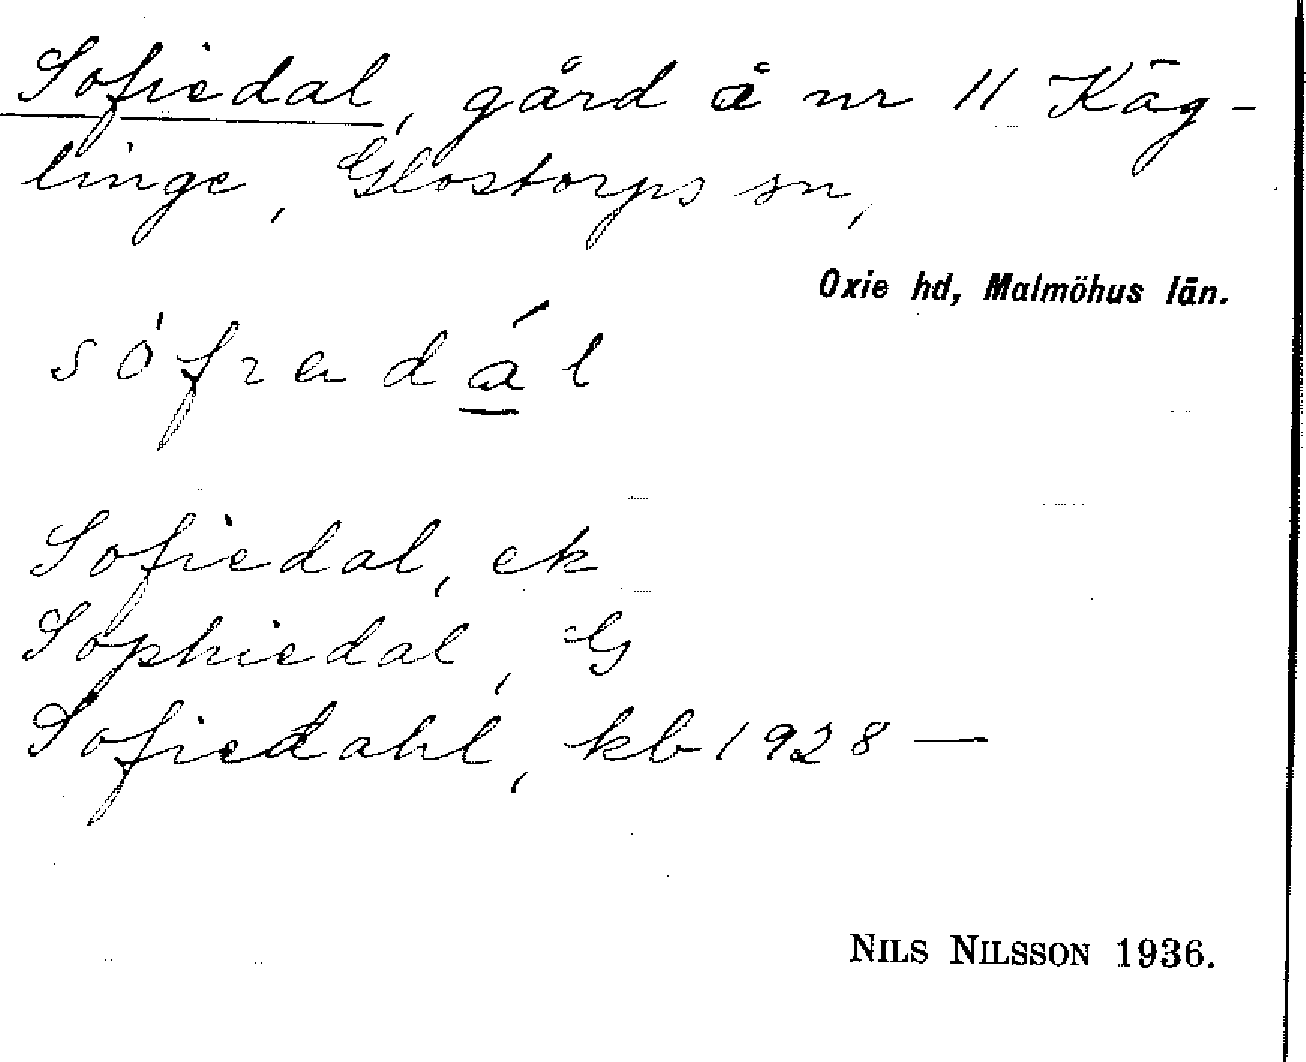 Sofiedal, gård å nr 11 Käg-
linge, Glostorps sn,
Oxie hd, Malmöhus län.
Sofiedal, ek
Sophiedal, G
Sofiedahl, kb 1928 —
NILS NILSSON 1936.